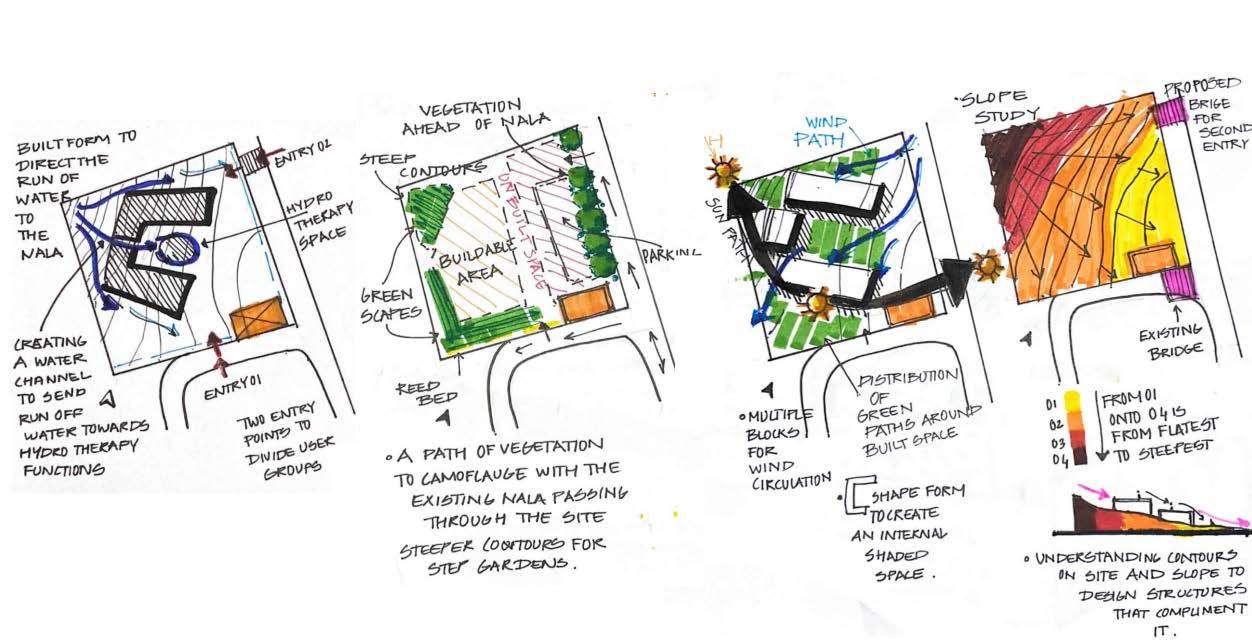 BUILT FORM TO
DIRECT THE
RUN OF
WATER
TO
THE
NALA
ENTRY 02
HYDRO
THERAPY
SPACE
CREATING
A WATER
CHANNEL
TO SEND
RUN OFF
WATER TOWARDS
HYDRO THERAPY
FUNCTIONS
ENTRY 01
TWO ENTRY
POINTS TO
DIVIDE USER
GROUPS
VEGETATION
AHEAD OF NALA
STEEP
CONTOURS
UNBUILT SPACE
BUILDABLE
AREA
PARKING
GREEN
SCAPES
REED
BED
• A PATH OF VEGETATION
TO CAMOFLAUGE WITH THE
EXISTING NALA PASSING
THROUGH THE SITE
STEEPER CONTOURS FOR
STEP GARDENS.
WIND
PATH
SUN PATH
DISTRIBUTION
OF
GREEN
PATHS AROUND
BUILT SPACE
• MULTIPLE
BLOCKS
FOR
WIND
CIRCULATION
• SHAPE FORM
TO CREATE
AN INTERNAL
SHADED
SPACE.
• SLOPE
STUDY
PROPOSED
BRIGE
FOR
SECOND
ENTRY
EXISTING
BRIDGE
01
02
03
04
FROM 01
ONTO 04 IS
FROM FLATEST
TO STEEPEST
• UNDERSTANDING CONTOURS
ON SITE AND SLOPE TO
DESIGN STRUCTURES
THAT COMPLIMENT
IT.